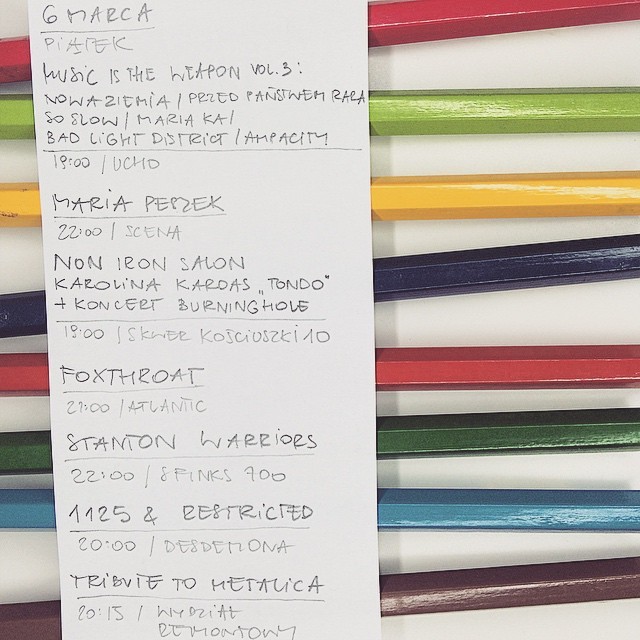 6 MARCA
PIĄTEK
MUSIC IS THE WEAPON VOL.3:
NOWA ZIEMIA / PRZED PAŃSTWEM RARA
SO SLOW / MARIA KA /
BAD LIGHT DISTRICT / AMPACITY
19:00 / UCHO
MARIA PESZEK
22:00 / SCENA
NON IRON SALON
KAROLINA KARDAS „TONDO"
+ KONCERT BURNINGHOLE
19:00 / SKWER KOŚCIUSZKI 10
FOXTHROAT
21:00 / ATLANTIC
STANTON WARRIORS
22:00 / SFINKS 700
1125 & RESTRICTED
20:00 / DESDEMONA
TRIBUTE TO METALICA
20:15 / WYDZIAŁ
REMONTOWY